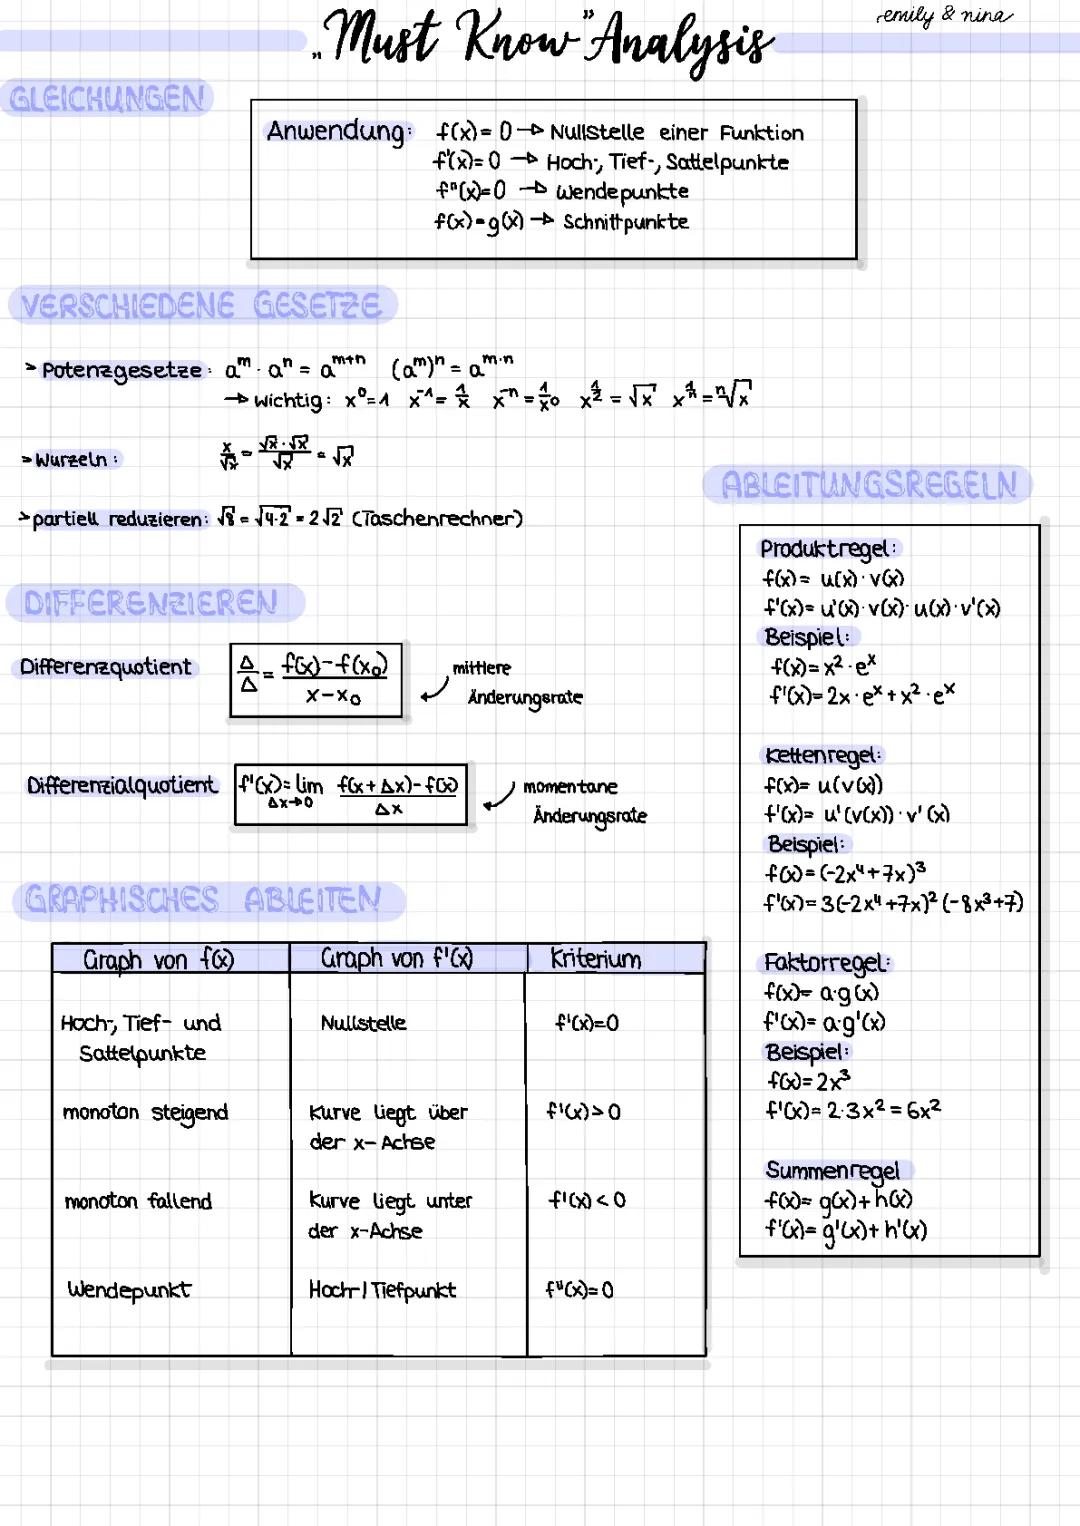 emily & nina
„Must Know" Analysis
GLEICHUNGEN
Anwendung: f(x) = 0 → Nullstelle einer Funktion
f'(x) = 0 → Hoch-, Tief-, Sattelpunkte
f"(x)=0 → Wendepunkte
f(x) = g(x) → Schnittpunkte
VERSCHIEDENE GESETZE
> Potenzgesetze: a^m · a^n = a^(m+n) (a^m)^n = a^(m·n)
→ Wichtig: x^0=1 x^-1 = 1/x x^-n = 1/x^0 x^(1/2) = √x x^(1/n) = ⁿ√x
> Wurzeln: x/√x = (√x · √x)/√x = √x
> partiell reduzieren: √8 = √4·2 = 2√2 (Taschenrechner)
DIFFERENZIEREN
Differenzquotient Δ/Δ = (f(x)-f(x₀))/(x-x₀) mittlere
Änderungsrate
Differenzialquotient f'(x)= lim Δx→0 (f(x+Δx)-f(x))/Δx momentane
Änderungsrate
GRAPHISCHES ABLEITEN
Graph von f(x) Graph von f'(x) Kriterium
Hoch-, Tief- und Nullstelle f'(x)=0
Sattelpunkte
monoton steigend Kurve liegt über f'(x)>0
der x-Achse
monoton fallend Kurve liegt unter f'(x)<0
der x-Achse
Wendepunkt Hoch-/Tiefpunkt f"(x)=0
ABLEITUNGSREGELN
Produktregel:
f(x)= u(x)·v(x)
f'(x)= u'(x)·v(x)·u(x)·v'(x)
Beispiel:
f(x)= x²·e^x
f'(x)= 2x·e^x+x²·e^x
Kettenregel:
f(x)= u(v(x))
f'(x)= u'(v(x))·v'(x)
Beispiel:
f(x)= (-2x⁴+7x)³
f'(x)= 3(-2x⁴+7x)²(-8x³+7)
Faktorregel:
f(x)= a·g(x)
f'(x)= a·g'(x)
Beispiel:
f(x)= 2x³
f'(x)= 2·3x² = 6x²
Summenregel
f(x)= g(x)+h(x)
f'(x)= g'(x)+h'(x)